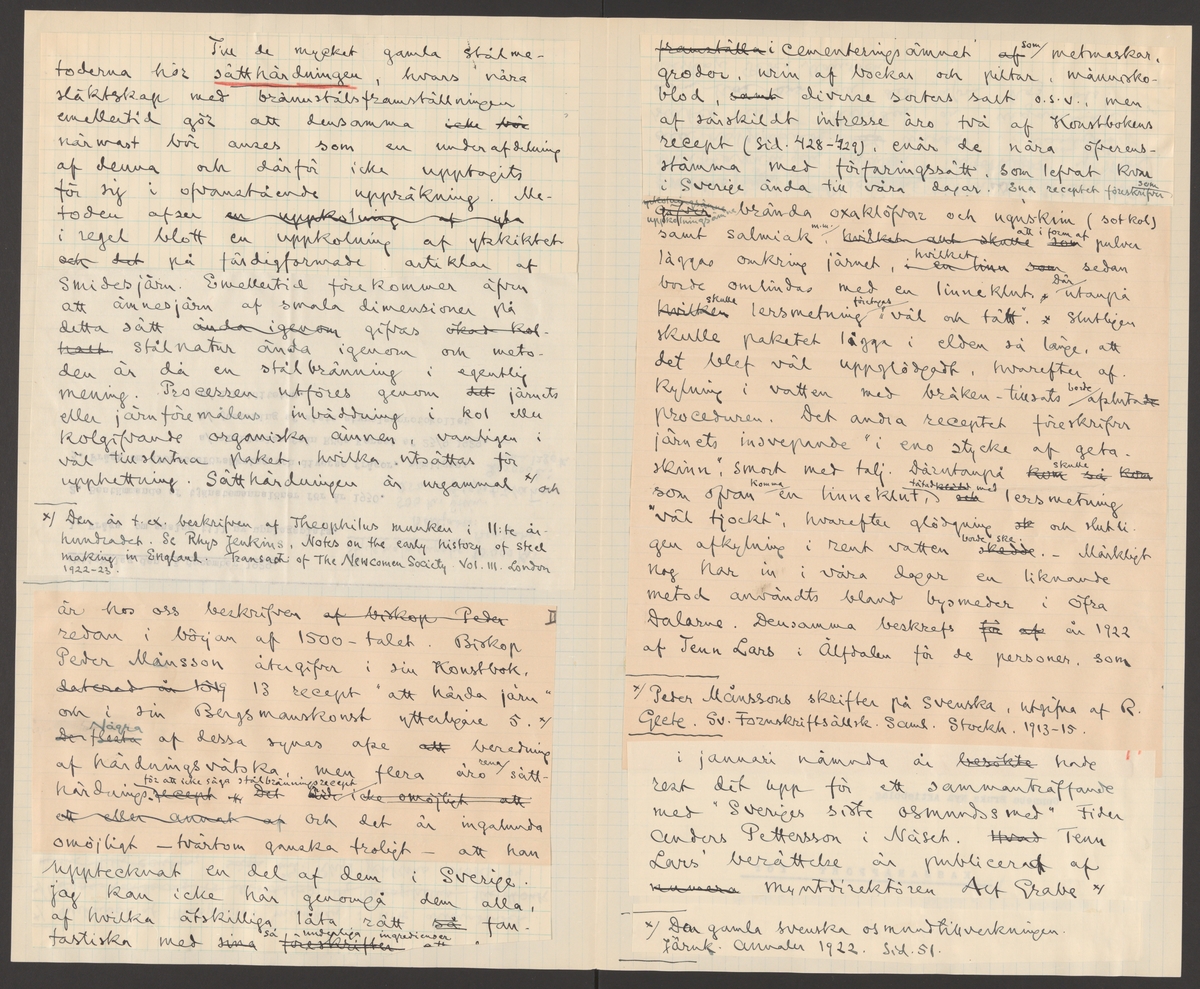 Till de mycket gamla stålme-
toderna hör sätthärdningen, hvars nära
släktskap med brännstålsframställningen
emellertid gör att densamma icke bör
närmast bör anses som en underafdelning
af denna och därför icke upptagits
för sig i ofvanstående uppräkning. Me-
toden afser en uppkolning af yta
i regel blott en uppkolning af ytskiktet
och det på färdigformade artiklar af
smidesjärn. Emellertid förekommer äfven
att ämnesjärn af smala dimensioner på
detta sätt ända igenom gifvas ökad kol-
halt stålnatur ända igenom och meto-
den är då en stålbränning i egentlig
mening. Processen utföres genom det järnets
eller järnföremålens inbäddning i kol eller
kolgifvande organiska ämnen, vanligen i
väl tillslutna paket, hvilka utsättas för
upphettning. Sätthärdningen är urgammal x/ och
x/ Den är t.ex. beskrifven af Theophilus munken i 11:te år-
hundradet. Se Rhys Jenkins, Notes on the early history of steel
making in England. Transact. of The Newcomen Society. Vol. III. London
1922-23.
är hos oss beskrifven af biskop Peder
redan i början af 1500-talet. Biskop
Peder Månsson återgifver i sin Konstbok,
daterad år 1519 13 recept "att härda järn"
och i sin Bergsmanskonst ytterligare 5. x/
Några
de flesta af dessa synas afse att beredning
af härdningsvätska, men flera äro rena sätt-
för att icke säga stålbränningsrecept
härdnings recept x, Det är icke omöjligt att
ett eller annat af och det är ingalunda
omöjligt – tvärtom ganska troligt – att han
upptecknat en del af dem i Sverige.
Jag kan icke här genomgå dem alla,
af hvilka åtskilliga låta rätt så fan-
så underliga ingredienser
tastiska med sina föreskrifter att
framställa i cementeringsämnet af som metmaskar,
grodor, urin af bockar och piltar, människo-
blod, samt diverse sorters salt o.s.v., men
af särskildt intresse äro två af Konstbokens
recept (sid. 428-429), enär de nära öfverens-
stämma med förfaringssätt, som lefvat kvar
i Sverige ända till våra dagar. Ena receptet föreskrifver som
uppkolningsämne
gifver brända oxaklöfvar och ugnskin (sotkol)
samt salmiak m.m. hvilket allt skulle att i form af som pulver
läggas omkring järnet, hvilket i en linn som sedan
borde omlindas med en linneklut, Där utanpå
hvilken skulle lersmetning förekomma "väl och tätt". x Slutligen
skulle paketet lägga i elden så länge, att
det blef väl uppglödgadt, hvarefter af-
kylning i vatten med bräken-tillsats borde afsluta de
proceduren. Det andra receptet föreskrifver
järnets insvepande "i eno stycke af geta-
skinn", smort med talj. Därutanpå kom så skulle kom
som ofvan komma en linneklut, och med lersmetning
"väl tjockt", hvarefter glödgning sk och slutli-
gen afkylning i rent vatten borde ske. skedde. – Märkligt
nog har in i våra dagar en liknande
metod användts bland bysmeder i Öfra
Dalarne. Densamma beskrefs få af år 1922
af Tenn Lars i Älfdalen för de personer, som
x/ Peder Månssons skrifter på Svenska, utgifna af R.
Geete. Sv. Fornskriftsällsk. Saml. Stockh. 1913-15.
i januari nämnda år besökte hade
rest dit upp för ett sammanträffande
med "Sveriges siste osmundssmed" Fider
Anders Pettersson i Näset. Hvad Tenn
Lars' berättelse är publicerad af
numera myntdirektören Alf Grabe x/
x/ Den gamla svenska osmundtillverkningen.
Järnk. Annaler 1922. Sid. 51.